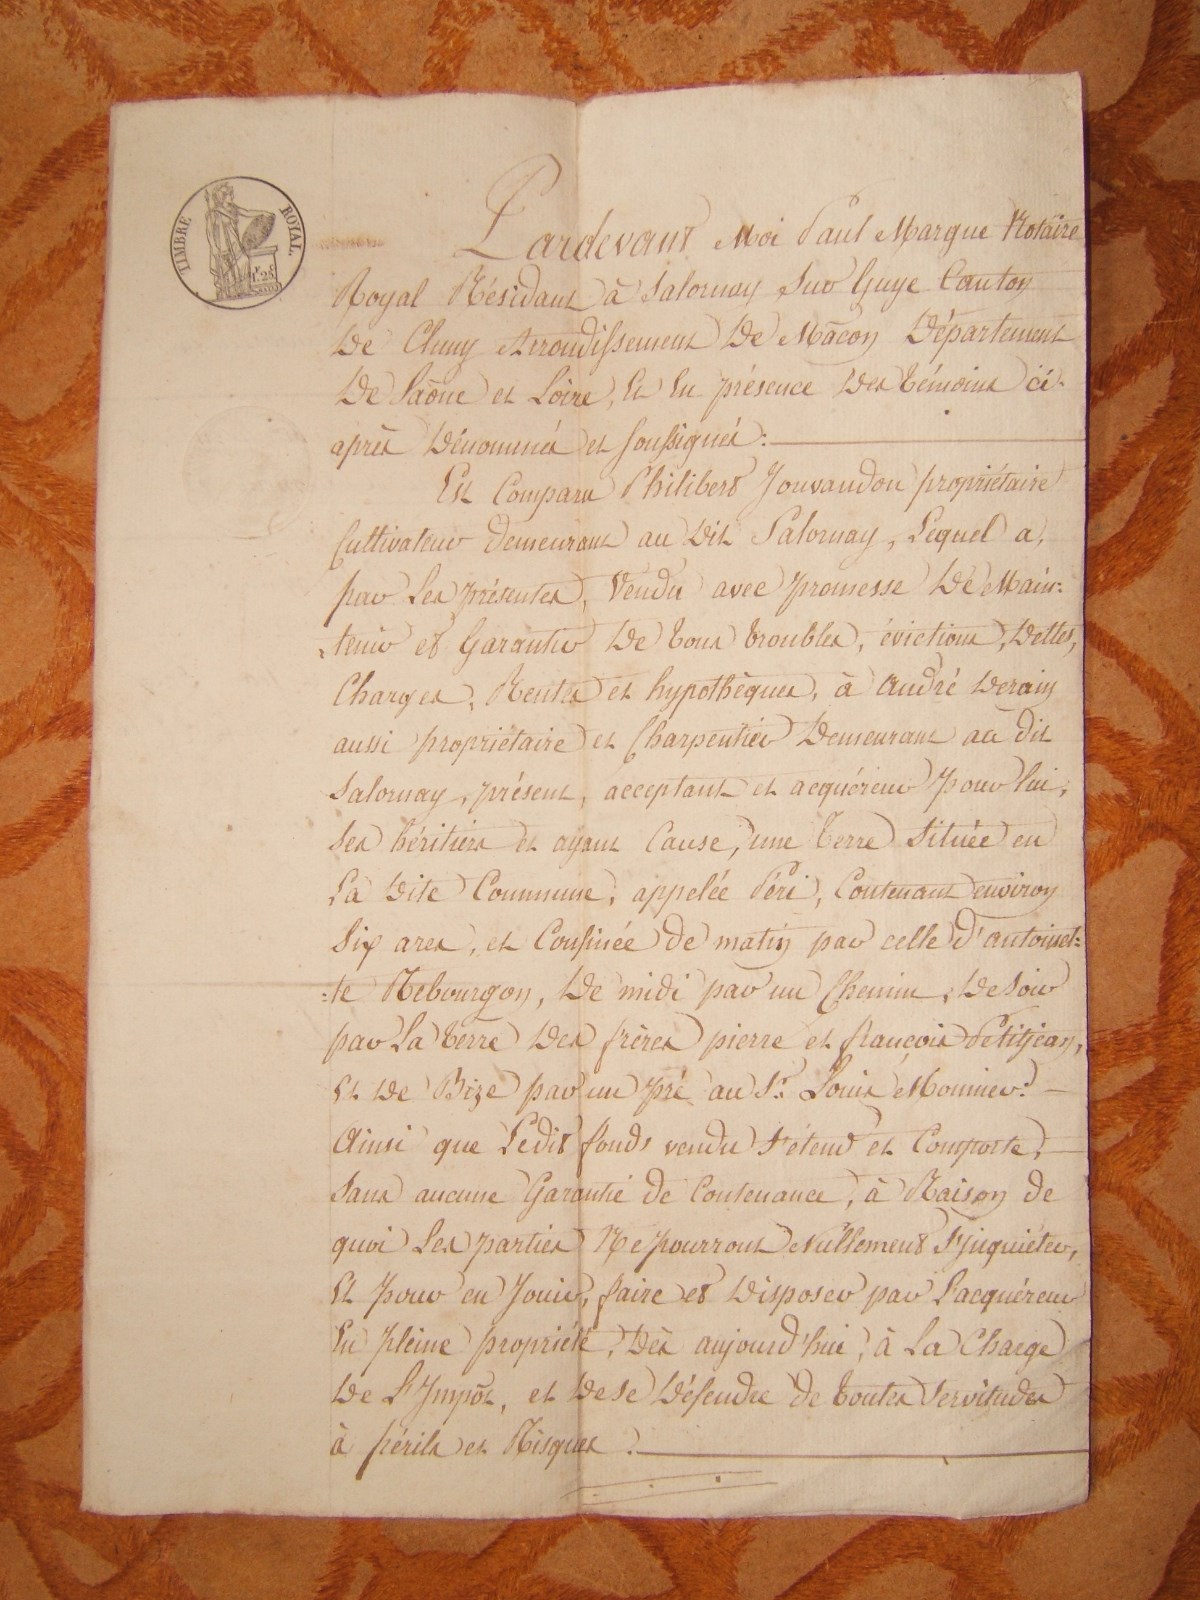 TIMBRE ROYAL.
1f. 25c.
Pardevant Moi Paul Margue Notaire
Royal Résidant à Salornay Sur Guye Canton
De Cluny Arrondissement De Mâcon Département
De Saône et Loire, Et En présence Des témoins ci-
après Dénommés et soussignés :
Est Comparu Philibert Jouvandon propriétaire
Cultivateur demeurant au Dit Salornay, Lequel a,
par Les présentes, Vendu avec promesse De Main:
:tenir et Garantir De tous troubles, évictions, Dettes,
Charges, Rentes et hypothèques, à André Derain
aussi propriétaire et Charpentier Demeurant au dit
Salornay, présent, acceptant et acquéreur pour lui,
Ses héritiers et ayant Cause, une terre Située en
La Dite Commune, appelée Péri, Contenant environ
Six ares, et Confinée de matin par celle d'antoinet:
:te Rebourgon, De midi par un Chemin, De Soir
par La terre Des frères pierre et françois Petitjean,
Et De Bize par un pré au Sr. Louis Monnier.
Ainsi que Ledit fonds vendu s'étend et Comporte,
Sans aucune Garantie de Contenance, à Raison de
quoi Les parties Ne pourront Nullement S'inquiéter,
Et pour en Jouir, faire et Disposer par L'acquéreur
En pleine propriété, Dès aujourd'hui, à La Charge
De L'Impôt, et De Se Défendre de toutes Servitudes
à périls et Risques.